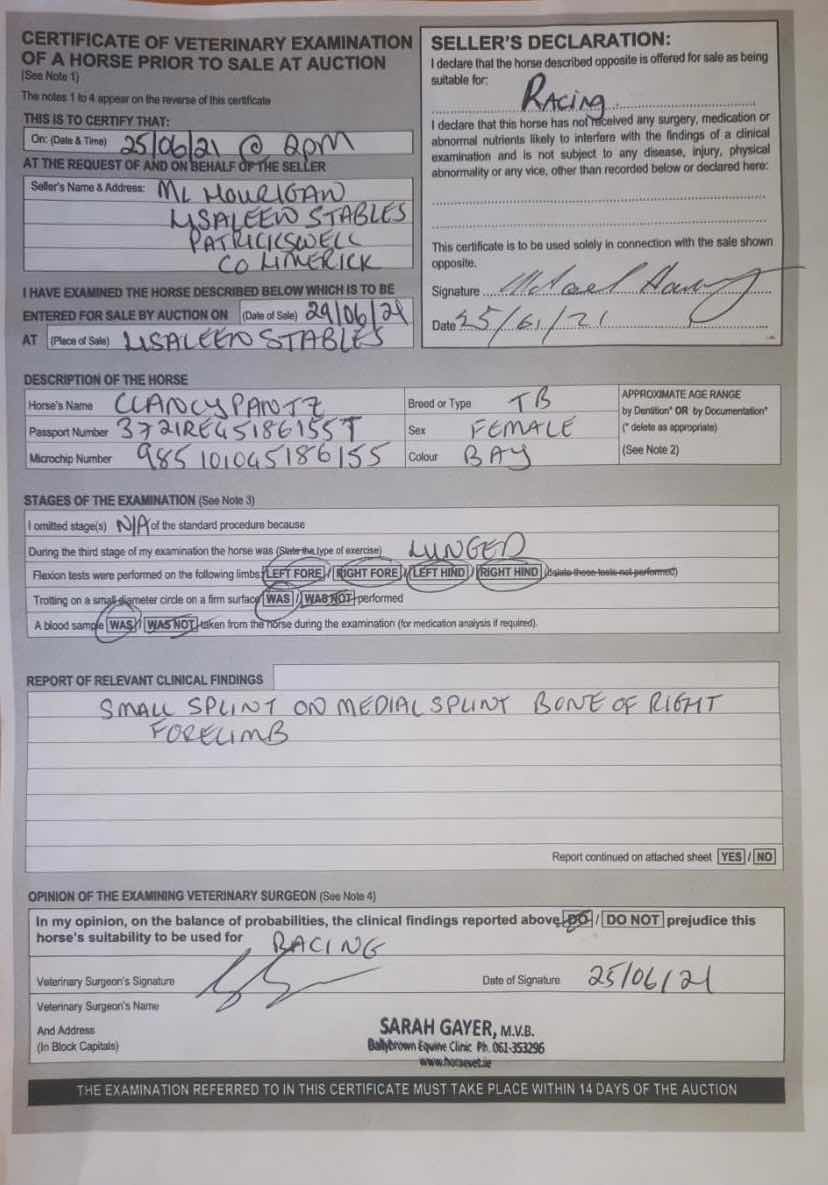 CERTIFICATE OF VETERINARY EXAMINATION
OF A HORSE PRIOR TO SALE AT AUCTION
(See Note 1)
The notes 1 to 4 appear on the reverse of this certificate
THIS IS TO CERTIFY THAT:
On: (Date & Time) 25/06/21 @ 2pm
AT THE REQUEST OF AND ON BEHALF OF THE SELLER
Seller's Name & Address: ML HOURIGAN
LISALEEN STABLES
PATRICKSWELL
CO LIMERICK
I HAVE EXAMINED THE HORSE DESCRIBED BELOW WHICH IS TO BE
ENTERED FOR SALE BY AUCTION ON (Date of Sale) 29/06/21
AT (Place of Sale) LISALEEN STABLES
SELLER'S DECLARATION:
I declare that the horse described opposite is offered for sale as being
suitable for:
Racing
I declare that this horse has not received any surgery, medication or
abnormal nutrients likely to interfere with the findings of a clinical
examination and is not subject to any disease, injury, physical
abnormality or any vice, other than recorded below or declared here:
This certificate is to be used solely in connection with the sale shown
opposite.
Signature Michael
Date 25/6/21
DESCRIPTION OF THE HORSE
Horse's Name CLANCYPANTZ Breed or Type TB
Passport Number 372IREG5186155T Sex FEMALE
Microchip Number 985101045186155 Colour BAY
APPROXIMATE AGE RANGE
by Dentition* OR by Documentation*
(* delete as appropriate)
(See Note 2)
STAGES OF THE EXAMINATION (See Note 3)
I omitted stage(s) N/A of the standard procedure because
During the third stage of my examination the horse was (State the type of exercise) LUNGED
Flexion tests were performed on the following limbs: LEFT FORE / RIGHT FORE / LEFT HIND / RIGHT HIND (delete those tests not performed)
Trotting on a small diameter circle on a firm surface WAS / WAS NOT performed
A blood sample WAS / WAS NOT taken from the horse during the examination (for medication analysis if required).
REPORT OF RELEVANT CLINICAL FINDINGS
SMALL SPLINT ON MEDIAL SPLINT BONE OF RIGHT
FORELIMB
Report continued on attached sheet YES / NO
OPINION OF THE EXAMINING VETERINARY SURGEON (See Note 4)
In my opinion, on the balance of probabilities, the clinical findings reported above DO / DO NOT prejudice this
horse's suitability to be used for RACING
Veterinary Surgeon's Signature Date of Signature 25/06/21
Veterinary Surgeon's Name
And Address
(In Block Capitals)
SARAH GAYER, M.V.B.
Ballybrown Equine Clinic Ph. 061-353296
www.horsevet.ie
THE EXAMINATION REFERRED TO IN THIS CERTIFICATE MUST TAKE PLACE WITHIN 14 DAYS OF THE AUCTION